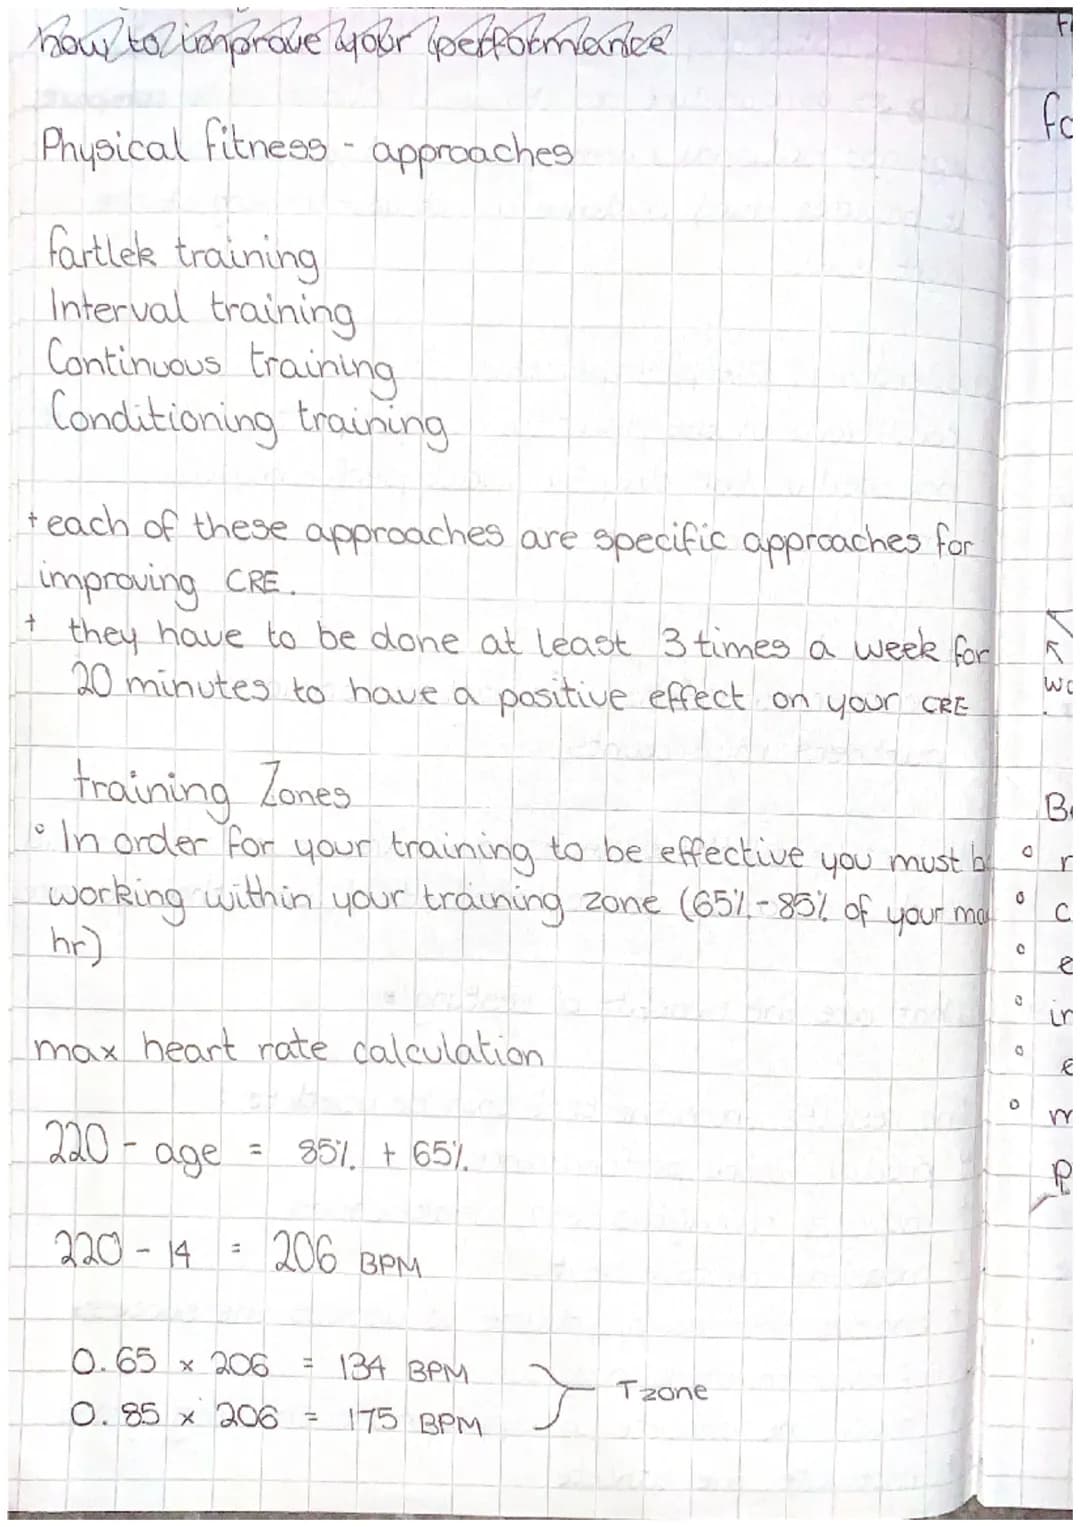 how to improve your performance
Physical fitness - approaches
fartlek training
Interval training
Continuous training
Conditioning training
+ each of these approaches are specific approaches for
improving CRE.
+ they have to be done at least 3 times a week for
20 minutes to have a positive effect on your CRE
training Zones
° In order for your training to be effective you must b
working within your training zone (65%-85% of your ma
hr)
max heart rate calculation
220 - age = 85% + 65%
220 - 14 = 206 BPM
0.65 x 206 = 134 BPM
0.85 x 206 = 175 BPM } Tzone